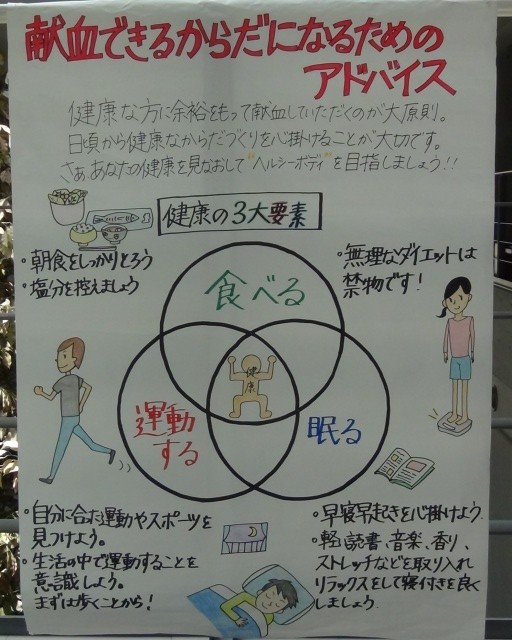 献血できるからだになるための
アドバイス
健康な方に余裕をもって献血していただくのが大原則。
日頃から健康なからだづくりを心掛けることが大切です。
さぁあなたの健康を見なおして"ヘルシーボディ"を目指しましょう!!
健康の3大要素
・朝食をしっかりとろう
・塩分を控えましょう
・無理なダイエットは
禁物です!
食べる
健康
運動
する
眠る
・自分に合た運動やスポーツを
見つけよう。
・生活の中で運動することを
意識しよう。
まずは歩くことから!
・早寝早起きを心掛けよう.
・軽い読書、音楽、香り、
ストレッチなどを取り入れ
リラックスをして寝付きを良く
しましょう.